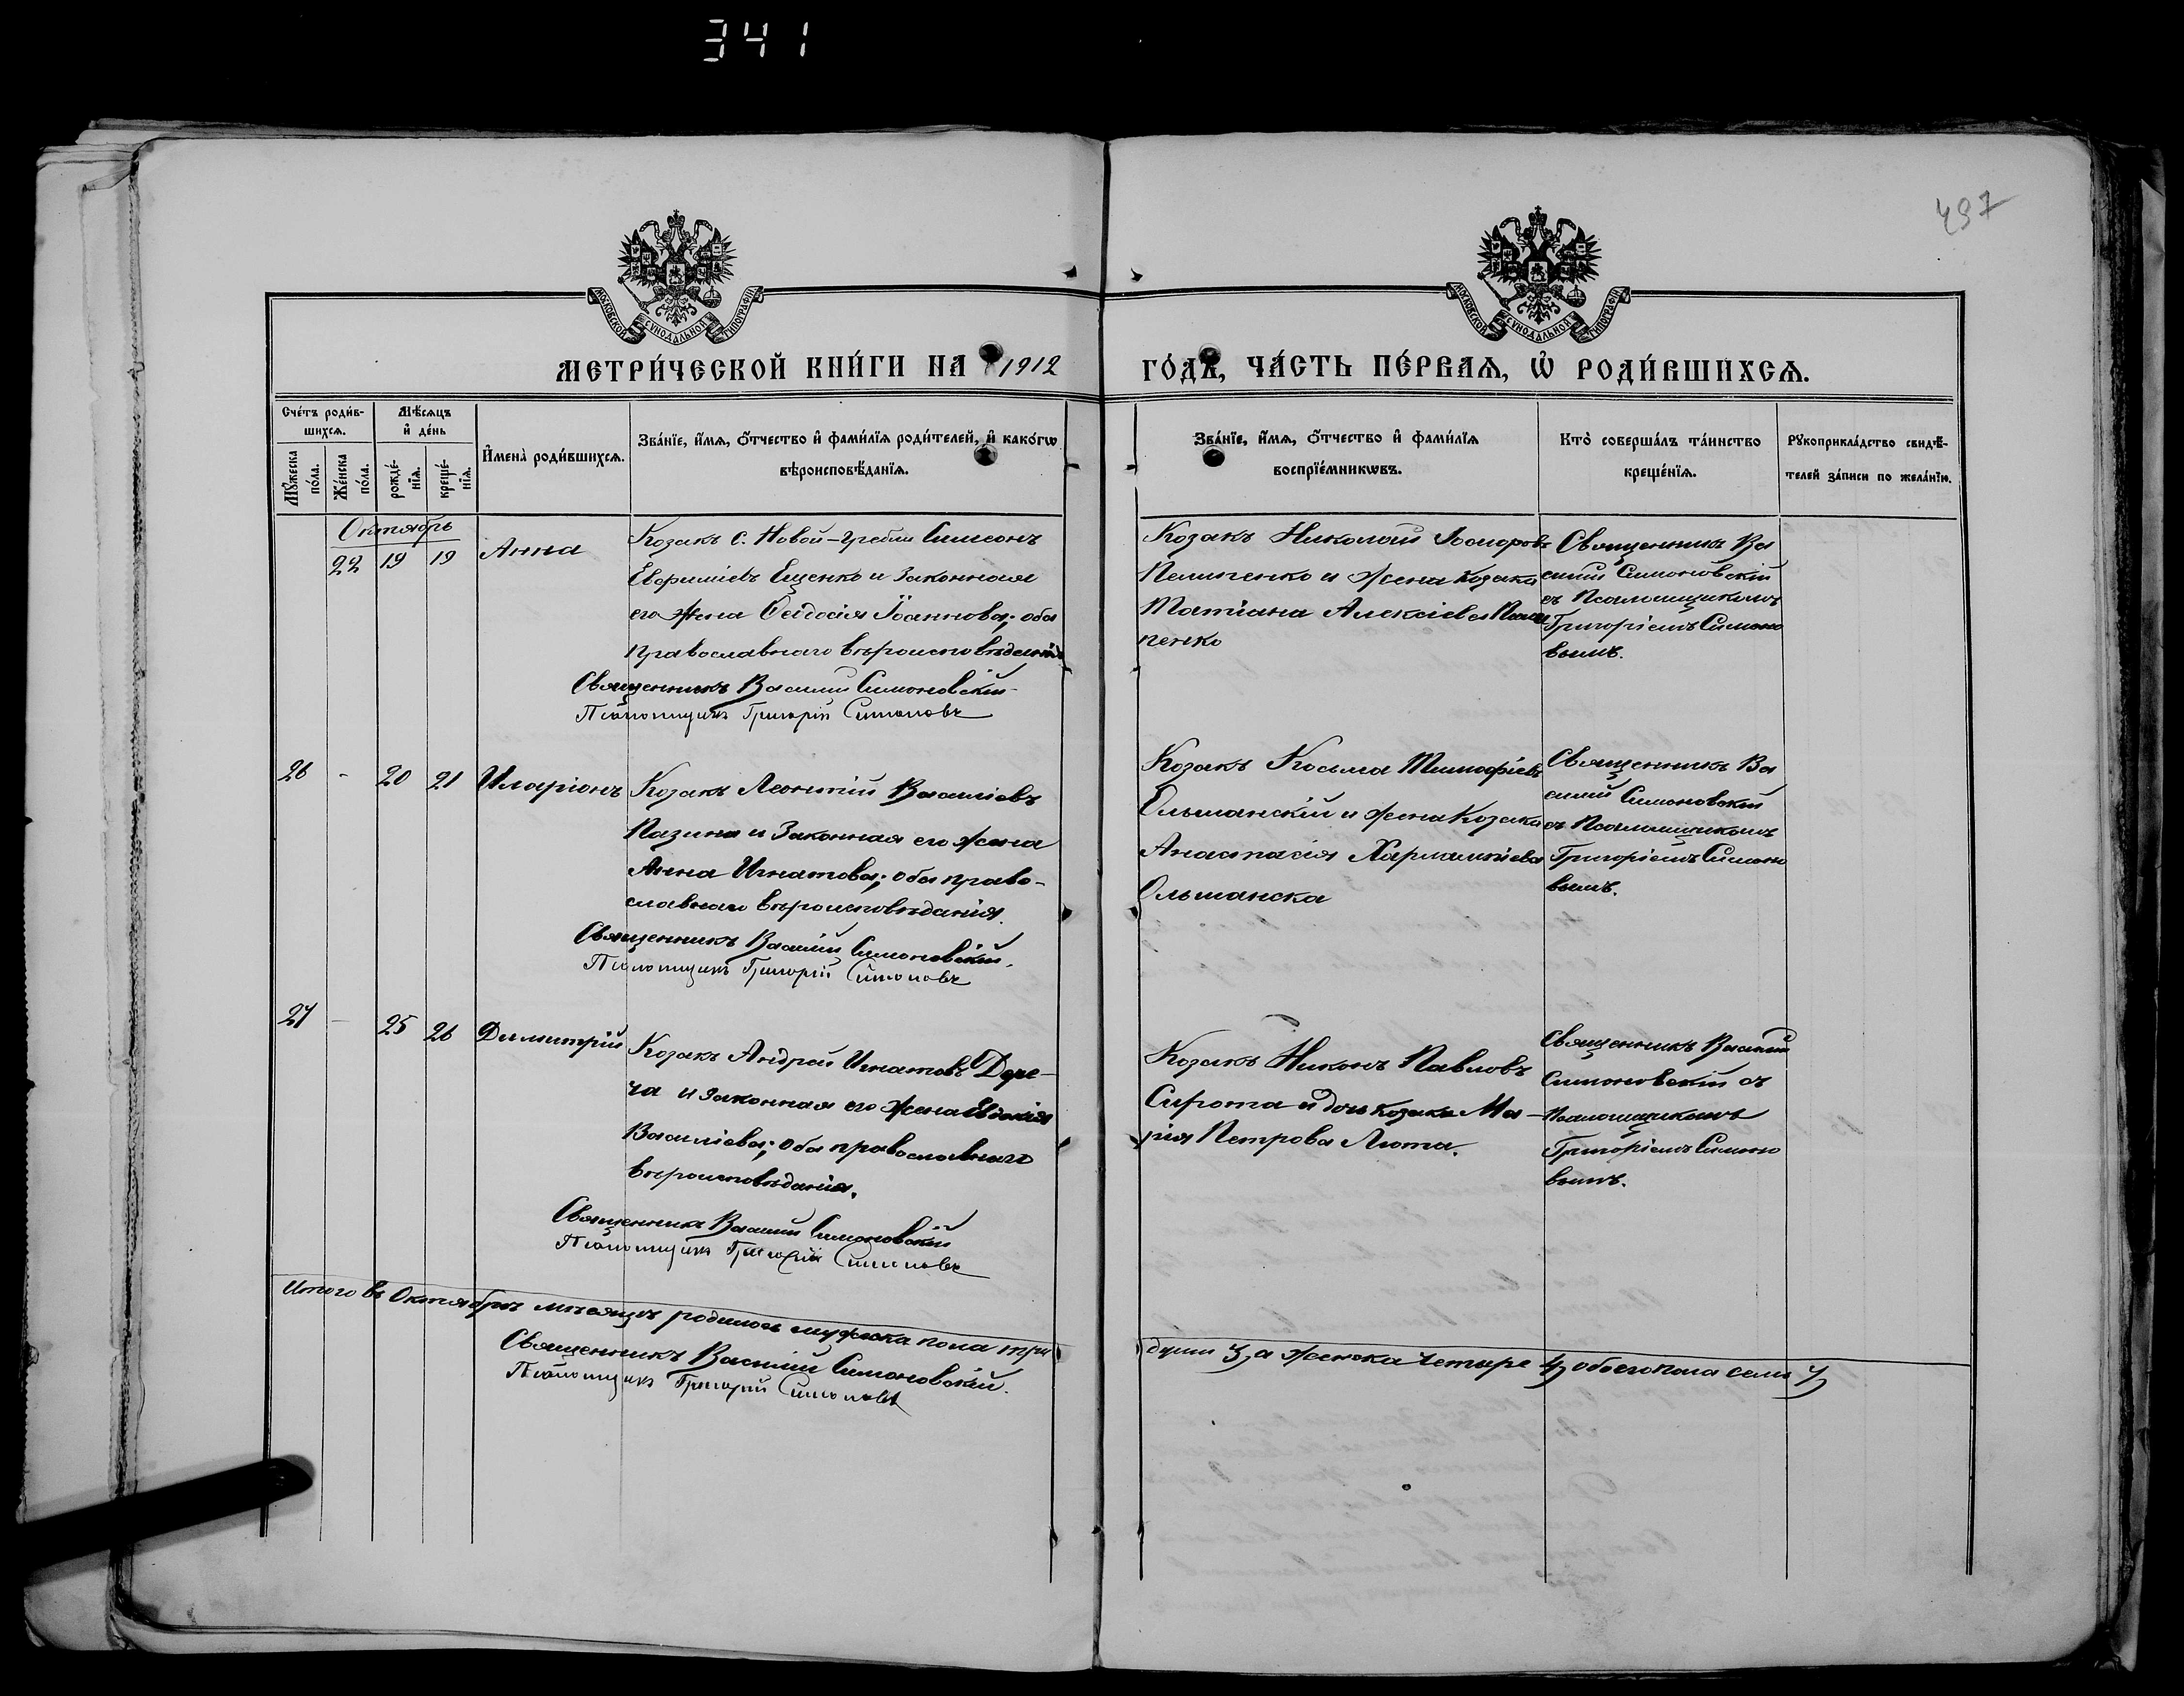 341
497
МОСКОВСКОЙ СѴНОДАЛЬНОЙ ТИПОГРАФІИ
МОСКОВСКОЙ СѴНОДАЛЬНОЙ ТИПОГРАФІИ
МЕТРИ́ЧЕСКОЙ КНИ́ГИ НА 1912
ГО́ДЪ, ЧА́СТЬ ПЕ́РВАѦ, Ѡ҆ РОДИ́ВШИХСѦ.
Сче́тъ роди́в-
шихсѧ.
Мꙋ́жеска
по́ла.
Же́нска
по́ла.
Мѣ́сѧцъ
и҆ де́нь
рожде́-
нїѧ.
креще́-
нїѧ.
И҆мена̀ роди́вшихсѧ.
Зва́нїе, и҆́мѧ, ѻ҆́тчество и҆ фами́лїѧ роди́телей, и҆ како́гѡ
вѣроисповѣ́данїѧ.
Зва́нїе, и҆́мѧ, ѻ҆́тчество и҆ фами́лїѧ
воспрїе́мникѡвъ.
Кто̀ соверша́лъ та́инство
креще́нїѧ.
Рꙋкоприкла́дство свидѣ́-
телей за́писи по жела́нїю.
Октябрь
22 19 19 Анна
Козакъ с. Новой-Гребли Симеонъ
Евфиміевъ Ещенко и законная
его жена Феодосія Іоаннова; оба
православнаго вѣроисповѣданія
Священникъ Василій Симоновскій
Псаломщикъ Григорій Симоновъ
Козакъ Николай
и жена козака
Татіана Алексіева
пенко
Священникъ Ва
силій Симоновскій
съ Псаломщикомъ
Григоріемъ Симоно
вымъ.
26 - 20 21 Иларіонъ
Козакъ Леонтій Василіевъ
Назина и законная его жена
Анна Игнатова; оба право-
славнаго вѣроисповѣданія.
Священникъ Василій Симоновскій.
Псаломщикъ Григорій Симоновъ
Козакъ Косьма Тимофіевъ
Ольшанскій и жена козака
Анастасія Харлампіева
Ольшанска
Священникъ Ва
силій Симоновскій
съ Псаломщикомъ
Григоріемъ Симоно
вымъ.
27 - 25 26 Димитрій
Козакъ Андрей Игнатовъ Дере-
ча и законная его жена Евдокія
Василіева; оба православнаго
вѣроисповѣданія.
Священникъ Василій Симоновскій
Псаломщикъ Григорій Симоновъ
Козакъ Никонъ Павловъ
Сирота и дочь козака Ма-
рія Петрова Люта.
Священникъ Василій
Симоновскій съ
Псаломщикомъ
Григоріемъ Симоно
вымъ.
Итого въ Октябрѣ мѣсяцѣ родилось мужска пола три
души 3, а женска четыре 4, обоего пола семь 7,
Священникъ Василій Симоновскій.
Псаломщикъ Григорій Симоновъ